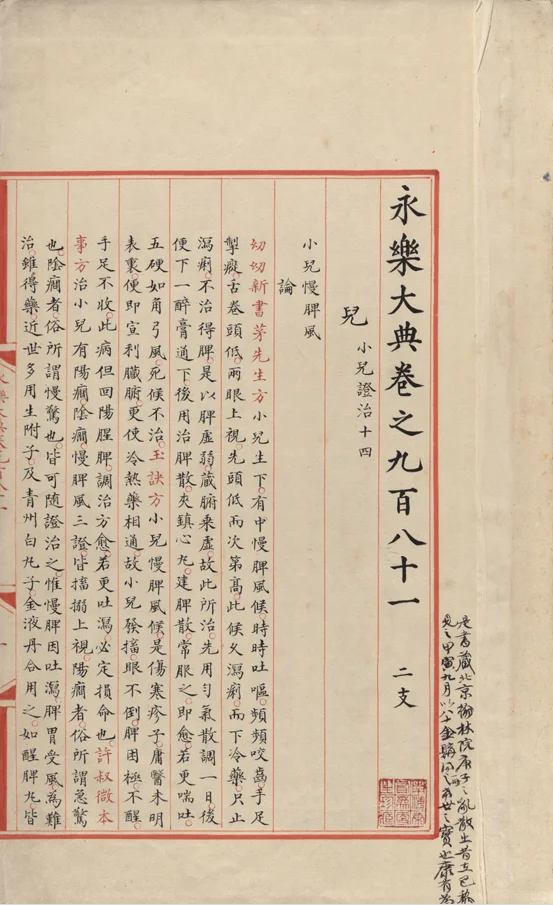 是書藏北京翰林院庚子之亂散出昔在巴黎
見之甲寅九月以
康有為
永樂大典卷之九百八十一 二支
兒 小兒證治十四
小兒慢脾風
論
幼幼新書茅先生方小兒生下有中慢脾風候時時吐嘔頻頻咬齒手足
掣癡舌卷頭低兩眼上視先頭低而次第高此候久瀉痢而下冷藥只止
瀉痢不治得脾是以脾虛弱藏腑乘虛故此所治先用勻氣散調一日後
便下一醉膏通下後用治脾散夾鎮心丸建脾散常服之即愈若更喘吐
五硬如角弓風死候不治玉訣方小兒慢脾風候是傷寒疹子庸醫未明
表裏便即宣利臟腑更使冷熱藥相通故小兒發搐眼不倒脾困極不醒
手足不收此病但回陽醒脾調治方愈若更吐瀉必定損命也許叔微本
事方治小兒有陽癎陰癎慢脾風三證皆搐搦上視陽癎者俗所謂急驚
也陰癎者俗所謂慢驚也皆可隨證治之惟慢脾因吐瀉脾胃受風為難
治雖得藥近世多用生附子及青州白丸子金液丹合用之如醒脾丸皆